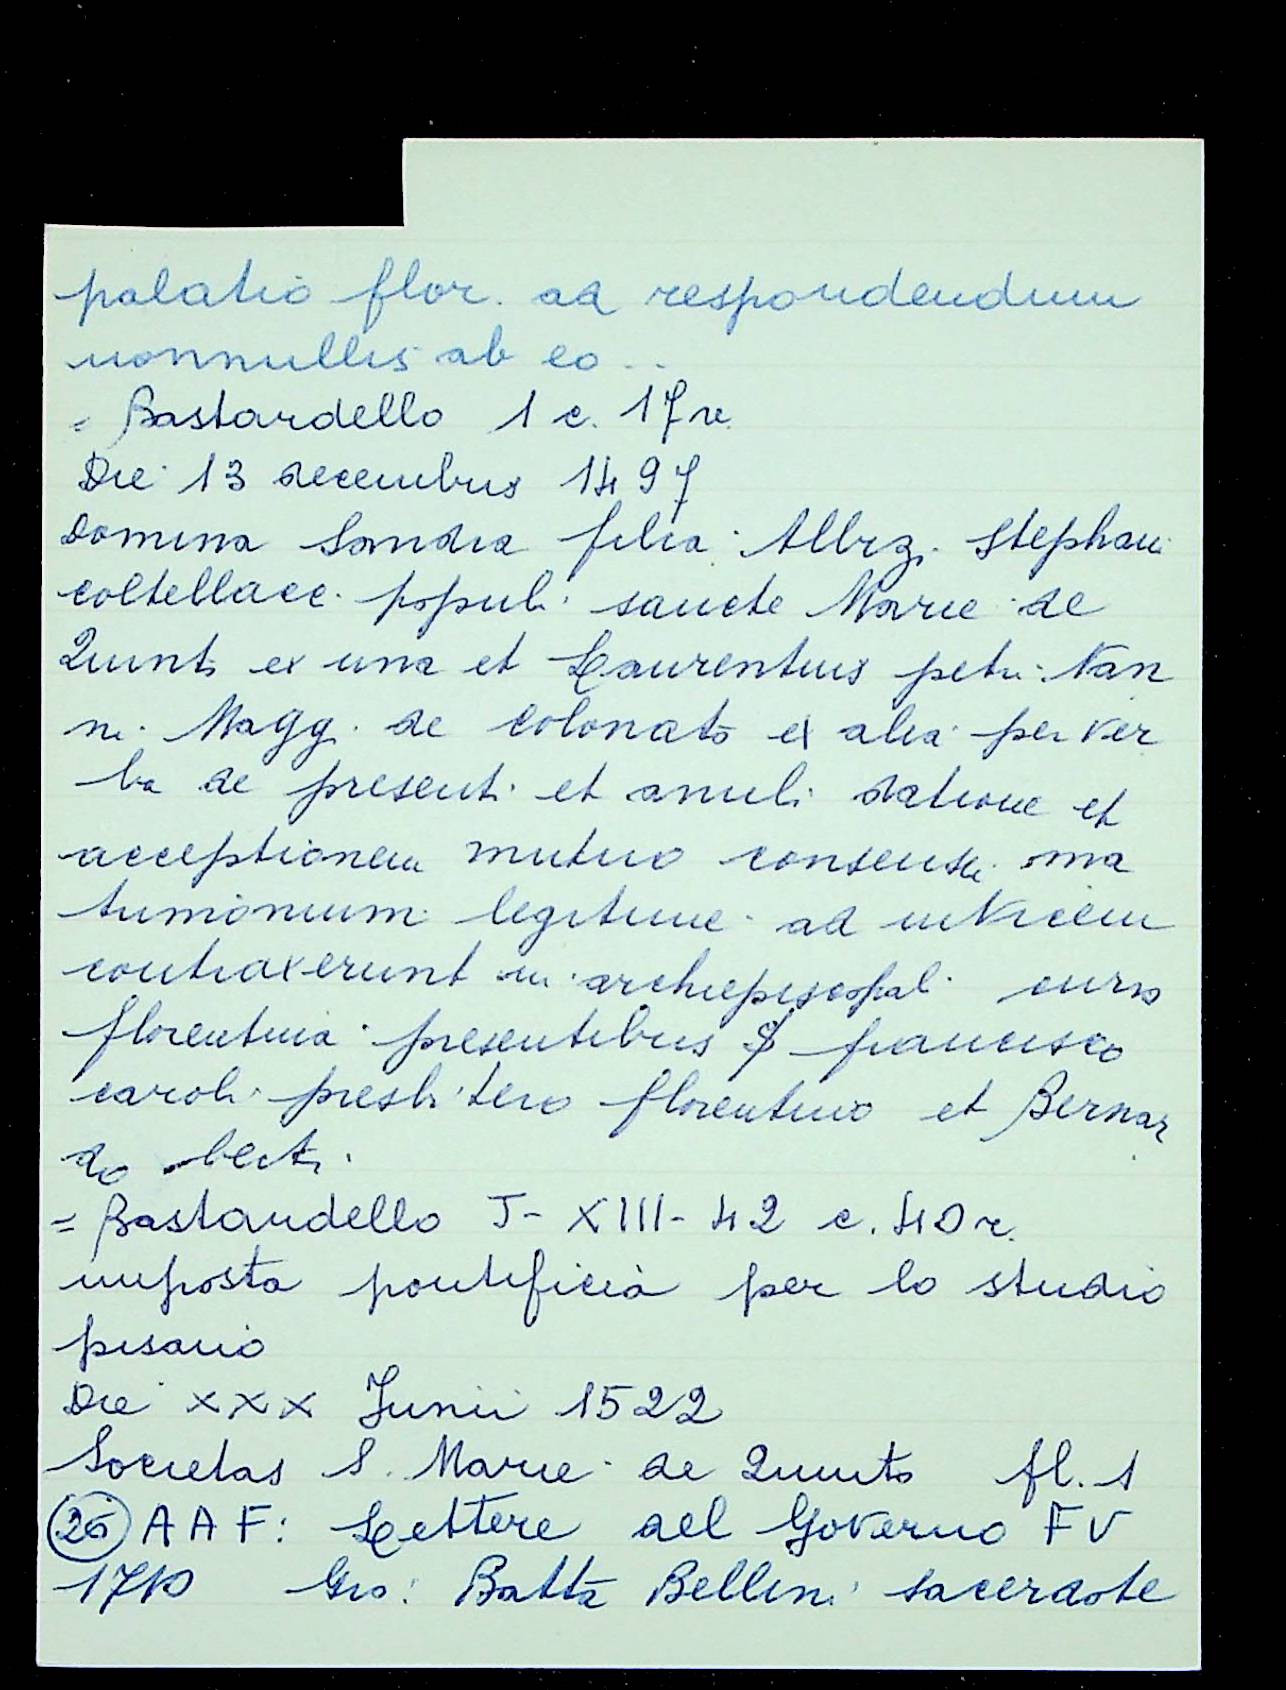 palatio flor. ad respondendum
nonnullis ab eo ..
= Bastardello 1 c. 17 r.
Die 13 decembris 1497
Domina Sandra filia Albiz. Stephani
coltellacc. populi sancte Marie de
Quinto ex una et Laurentius petri Nan
ni Magg. de Colonato ex alia per ver
ba de presenti et anuli datione et
acceptionem mutuo consensu ma
trimonium legitime ad invicem
contraxerunt in archiepiscopali curia
florentina presentibus S francisco
caroli presbitero florentino et Bernar
do becti
= Bastardello J - XIII - 42 c. 40 r.
imposta pontificia per lo studio
pisano
Die XXX Junii 1522
Societas S. Marie de Quinto fl. 1
26 AAF: Lettere del Governo FV
1710 Gio: Batta Bellini sacerdote